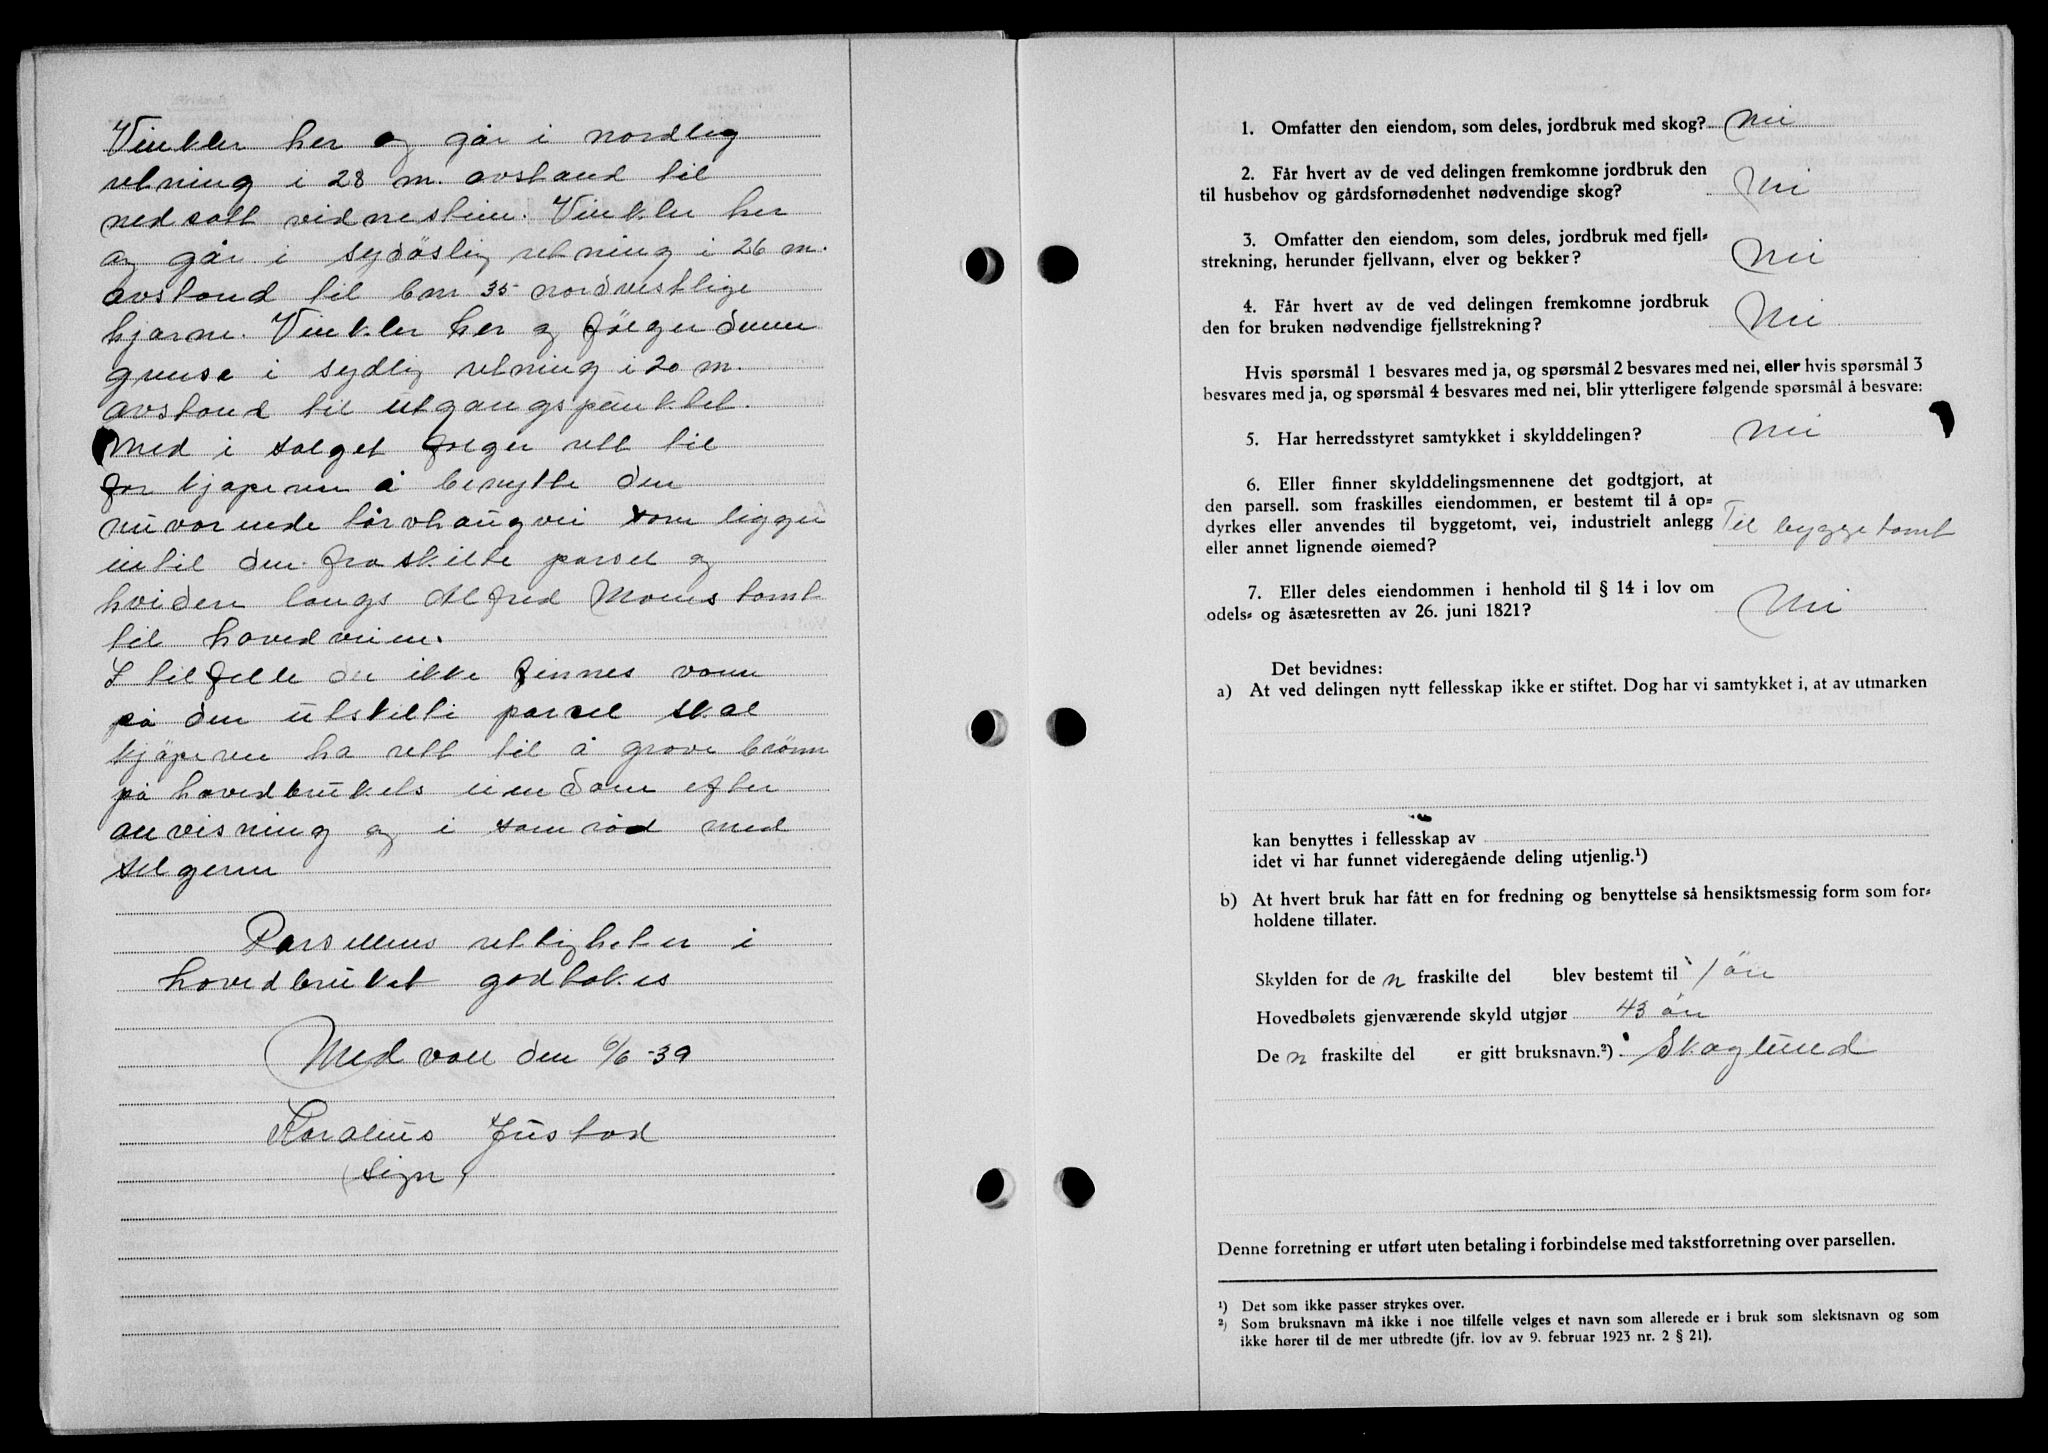 Vinkler her og går i nordlig
retning i 28 m. avstand til
nedsatt vidnestein. Vinkler her
og går i sydöstlig retning i 26 m.
avstand til bnr 35 nordvestlige
hjørne. Vinkler her og fölger denne
grense i sydlig retning i 20 m.
avstand til utgangspunktet.
Med i salget følger rett til
for kjøperen å benytte den
nuværende tørvhaugvei som ligger
intil den fraskilte parsel og
hviden langs Alfred Moens tomt
til hovedveien.
I tilfelle der ikke finnes vann
på den utskilte parsel skal
kjöperen ha rett til å grave brönn
på hovedbrukets eiendom efter
anvisning og i samråd med
selgeren
Parsellens rettigheter i
hovedbruket godtokes
Nedvoll den 6/6-39
Karolius Justad
(sign)
1. Omfatter den eiendom, som deles, jordbruk med skog? Nei
2. Får hvert av de ved delingen fremkomne jordbruk den
til husbehov og gårdsfornødenhet nødvendige skog? Nei
3. Omfatter den eiendom, som deles, jordbruk med fjell-
strekning, herunder fjellvann, elver og bekker? Nei
4. Får hvert av de ved delingen fremkomne jordbruk
den for bruken nødvendige fjellstrekning? Nei
Hvis spørsmål 1 besvares med ja, og spørsmål 2 besvares med nei, eller hvis spørsmål 3
besvares med ja, og spørsmål 4 besvares med nei, blir ytterligere følgende spørsmål å besvare:
5. Har herredsstyret samtykket i skylddelingen? Nei
6. Eller finner skylddelingsmennene det godtgjort, at
den parsell. som fraskilles eiendommen, er bestemt til å op-
dyrkes eller anvendes til byggetomt, vei, industrielt anlegg
eller annet lignende øiemed? Til byggetomt
7. Eller deles eiendommen i henhold til § 14 i lov om
odels- og åsætesretten av 26. juni 1821? Nei
Det bevidnes:
a) At ved delingen nytt fellesskap ikke er stiftet. Dog har vi samtykket i, at av utmarken
kan benyttes i fellesskap av
idet vi har funnet videregående deling utjenlig.¹)
b) At hvert bruk har fått en for fredning og benyttelse så hensiktsmessig form som for-
holdene tillater.
Skylden for de n fraskilte del blev bestemt til 1 öre
Hovedbølets gjenværende skyld utgjør 43 öre
De n fraskilte del er gitt bruksnavn.²) Skoglund
Denne forretning er utført uten betaling i forbindelse med takstforretning over parsellen.
¹) Det som ikke passer strykes over.
²) Som bruksnavn må ikke i noe tilfelle velges et navn som allerede er i bruk som slektsnavn og som
ikke hører til de mer utbredte (jfr. lov av 9. februar 1923 nr. 2 § 21).